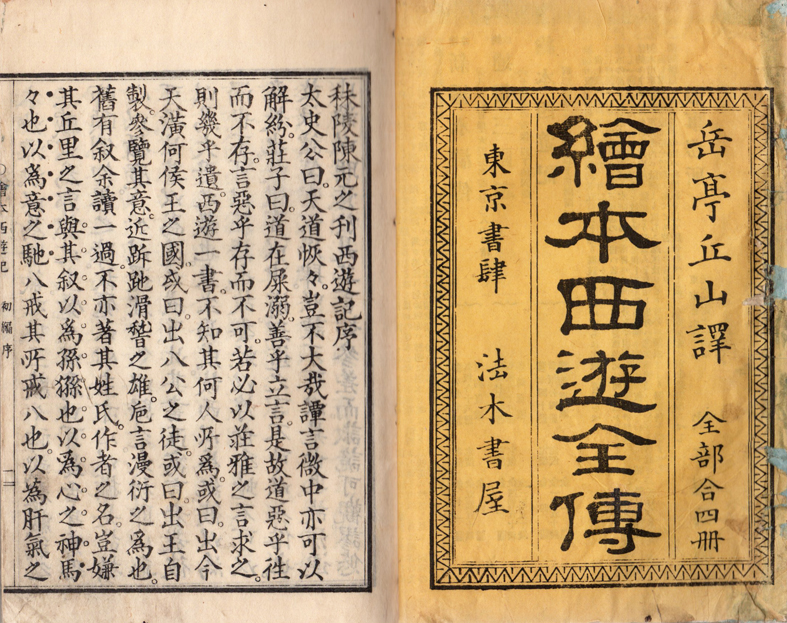 岳亭丘山譯 全部合四冊
繪本西遊全傳
東京書肆 法木書屋
秣陵陳元之刊西遊記序
太史公曰。天道恢々。豈不大哉譚言微中亦可以
解紛。莊子曰。道在屎溺。善乎立言。是故道惡乎徃
而不存。言惡乎存而不可。若必以莊雅之言求之。
則幾乎遺。西遊一書不知其何人所爲。或曰。出今
天潢何侯王之國。或曰。出八公之徒。或曰。出王自
製。參覽其意。近跅跎滑稽之雄。巵言漫衍之爲也。
舊有叙余讀一過。不亦著其姓氏。作者之名。豈嫌
其丘里之言與。其叙以爲猻猻也。以爲心之神。馬
々也以爲意之馳。八戒其所戒八也。以爲肝氣之
繪本西遊記 初編序